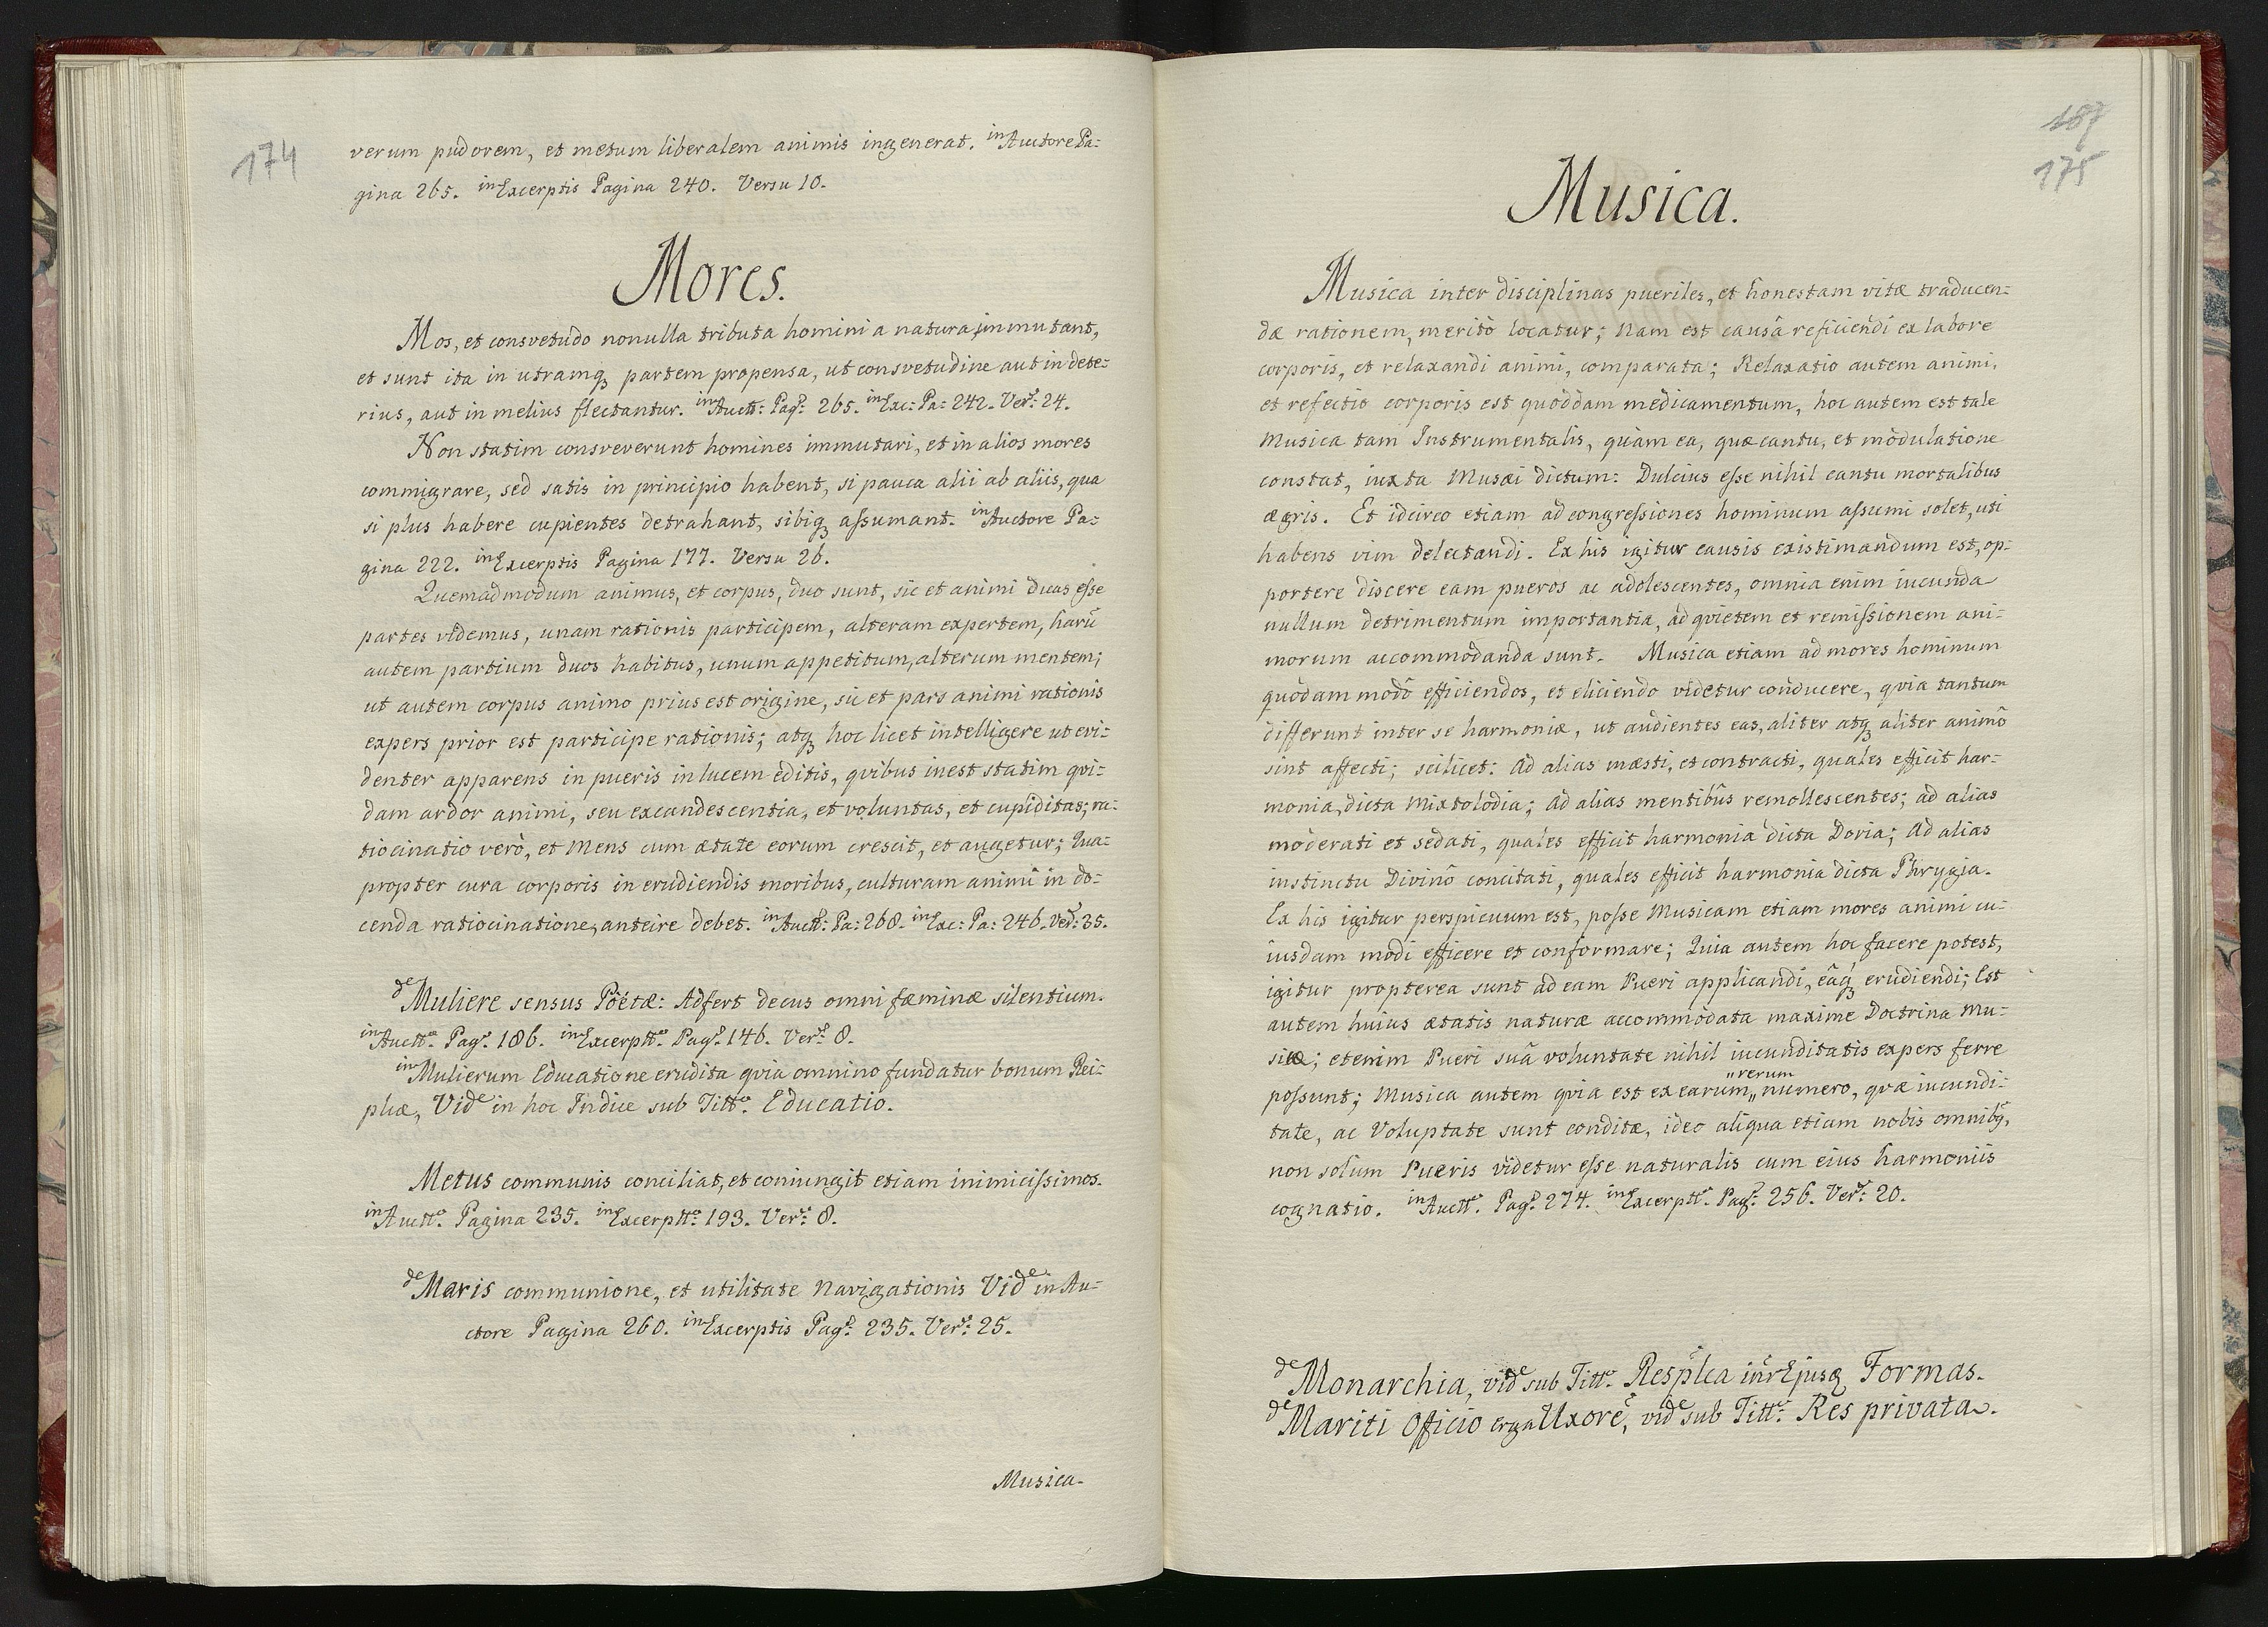 174
verum pudorem, et metum liberalem animis ingenerat. in Auctore Pa=
gina 265. in Excerptis Pagina 240. Versu 10.
Mores.
Mos, et consvetudo nonulla tributa homini a natura, immutant,
et sunt ita in utramq3 partem propensa, ut consvetudine aut in dete=
rius, aut in melius flectantur. in Auctt: Pag: 265. in Exc: Pa: 242. Ver: 24.
Non statim consveverunt homines immutari, et in alios mores
commigrare, sed satis in principio habent, si pauca alii ab aliis, qua
si plus habere cupientes detrahant, sibiq3 aſsumant. in Auctore Pa=
gina 222. in Excerptis Pagina 177. Versu 26.
Quemadmodum animus, et corpus, duo sunt, sic et animi duas eſse
partes videmus, unam rationis participem, alteram expertem, harũ
autem partium duos habitus, unum appetitum, alterum mentem;
ut autem corpus animo prius est origine, sic et pars animi rationis
expers prior est participe rationis; atq3 hoc licet intelligere ut evi=
denter apparens in pueris in lucem editis, qvibus inest statim qvi=
dam ardor animi, seu excandescentia, et voluntas, et cupiditas; ra=
tiocinatio verò, et Mens cum ætate eorum crescit, et augetur; Qua=
propter cura corporis in erudiendis moribus, culturam animi in do=
cenda ratiocinatione, anteire debet. in Auctt: Pa: 268. in Exc: Pa: 246. Ver: 35.
de Muliere sensus Pöetæ: Adfert decus omni fæminæ silentium.
in Auctt: Pag: 186. in Excerptt: Pag: 146. Ver: 8.
in Mulierum Educatione erudita qvia omnino fundatur bonum Rei=
plicæ, Vide in hoc Indice sub Titt: Educatio.
Metus communis conciliat, et coniungit etiam inimiciſsimos.
in Auctt: Pagina 235. in Excerptt: 193. Ver: 8.
de Maris communione, et utilitate Navigationis Vide in Au=
ctore Pagina 260. in Excerptis Pag: 235. Ver: 25.
Musica.
187
175
Musica.
Musica inter disciplinas pueriles, et honestam vitæ traducen=
dæ rationem, meritò locatur; Nam est causâ reficiendi ex labore
corporis, et relaxandi animi, comparata; Relaxatio autem animi,
et refectio corporis est quoddam medicamentum, hoc autem est tale
Musica tam Instrumentalis, quàm ea, quæ cantu, et modulatione
constat, iuxta Musæi dictum: Dulcius eſse nihil cantu mortalibus
ægris. Et idcirco etiam ad congreſsiones hominum aſsumi solet, uti
habens vim delectandi. Ex his igitur causis existimandum est, op=
portere discere eam pueros ac adolescentes, omnia enim iucunda
nullum detrimentum importantia, ad qvietem et remiſsionem ani=
morum accommodanda sunt. Musica etiam ad mores hominum
quodam modô efficiendos, et eliciendo videtur conducere, qvia tantum
differunt inter se harmoniæ, ut audientes eas, aliter atq3 aliter animô
sint affecti; scilicet: Ad alias mæsti, et contracti, quales efficit har=
monia, dicta Mixtolodia; ad alias mentibûs remollescentes; ad alias
moderati et sedati, quales efficit harmonia dicta Doria; Ad alias
instinctu Divinô concitati, quales efficit harmonia dicta Phrygia.
Ex his igitur perspicuum est, poſse Musicam etiam mores animi cu=
iusdam modi efficere et conformare; Quia autem hoc facere potest,
igitur propterea sunt ad eam Pueri applicandi, eâq3 erudiendi; Est
autem huius ætatis naturæ accommodata maxime Doctrina Mu=
sicæ; etenim Pueri suâ voluntate nihil iucunditatis expers ferre
poſsunt; Musica autem qvia est ex earum „rerum numero, qvæ iucundi=
tate, ac Voluptate sunt conditæ, ideo aliqua etiam nobis omnibq,
non solum Pueris videtur eſse naturalis cum eius harmoniis
cognatio. in Auctt: Pag: 274. in Excerptt: Pag: 256. Ver: 20.
de Monarchia, vide sub Titt: Resplca intr Ejusq Formas.
de Mariti Officio erga Uxorẽ, vide sub Titt: Res privata.